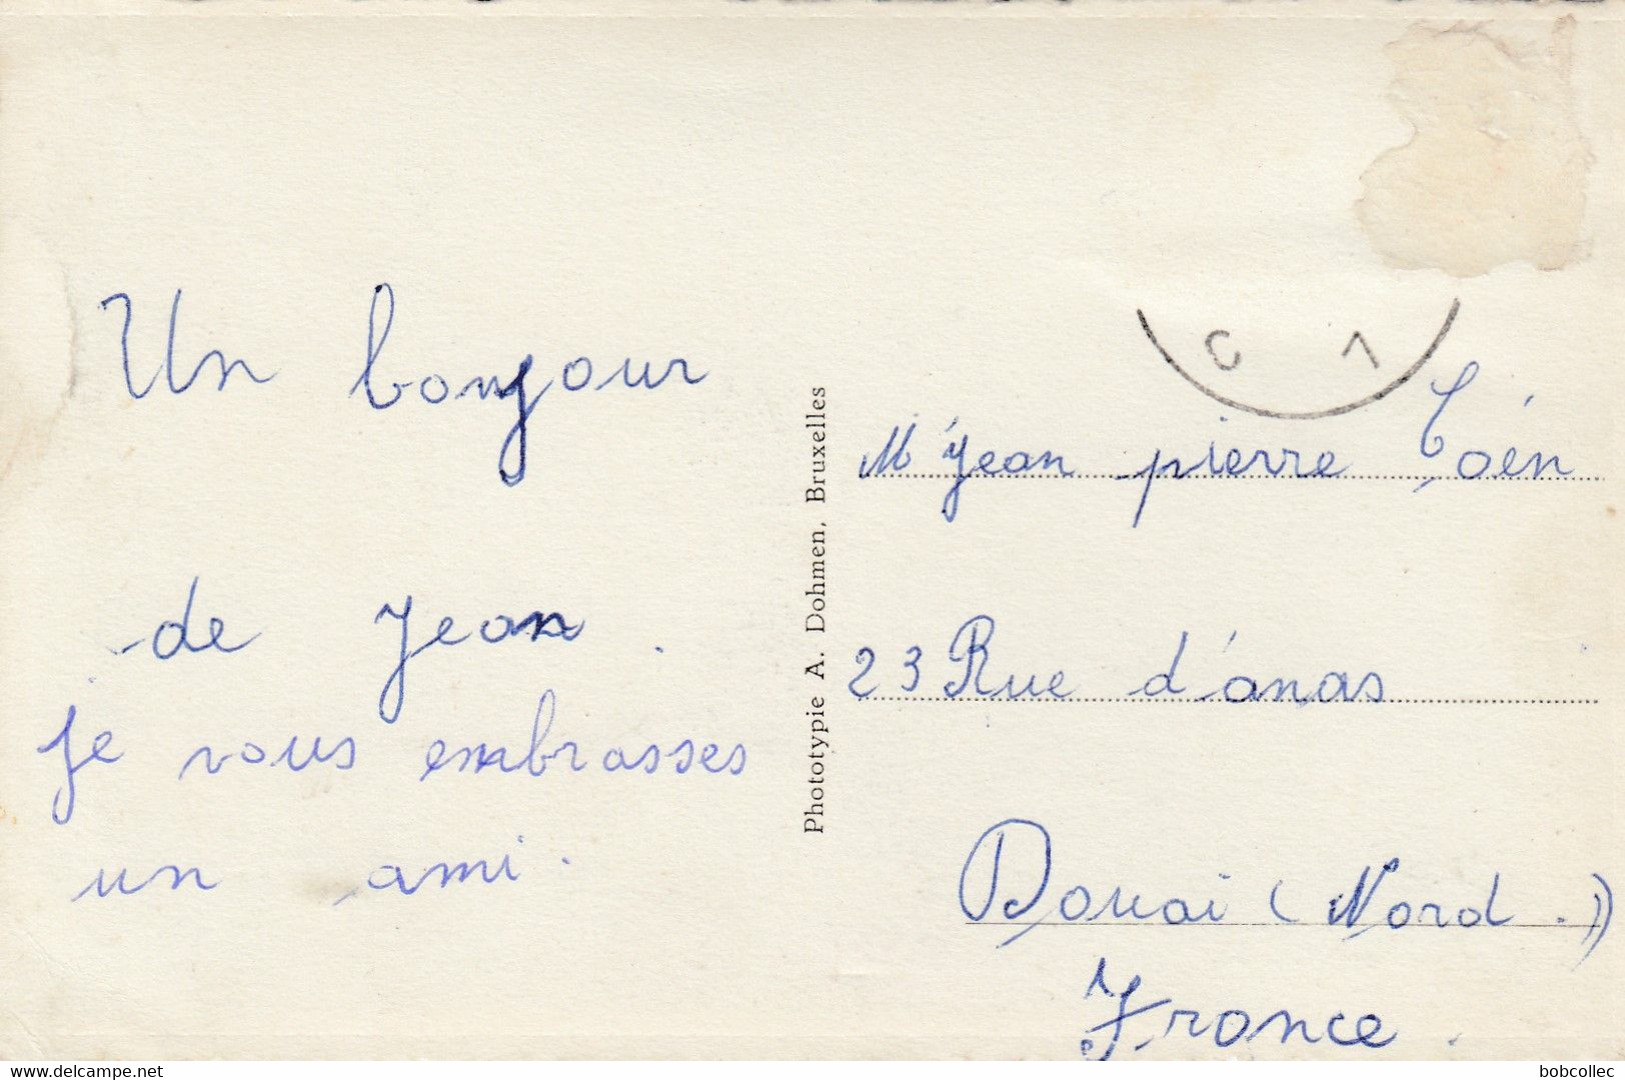 Un bonjour
de Jean.
je vous embrasses
un ami.
Phototypie A. Dohmen, Bruxelles
Mr jean pierre
23 Rue d'anas
Douai (Nord.)
France.
www.delcampe.net
bobcollec